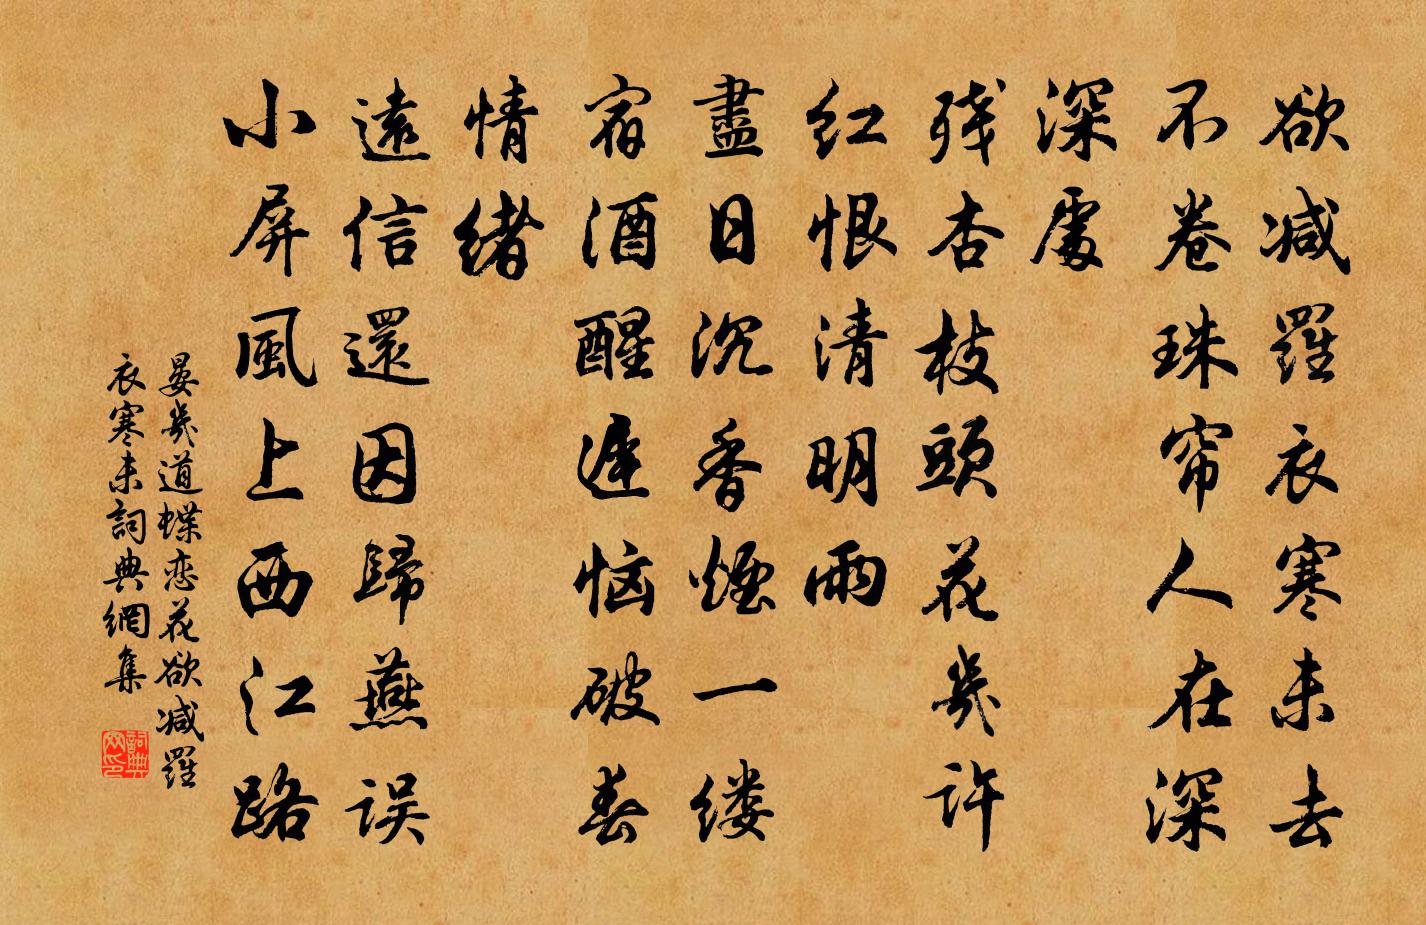 欲减羅衣寒未去
不卷珠帘人在深
深處
残杏枝頭花幾許
红恨清明雨
盡日沉香煙一缕
宿酒醒遲恼破春
情緒
遠信還因歸燕误
小屏風上西江路
晏幾道蝶恋花欲减羅
衣寒未詞典網集
詞典
网印